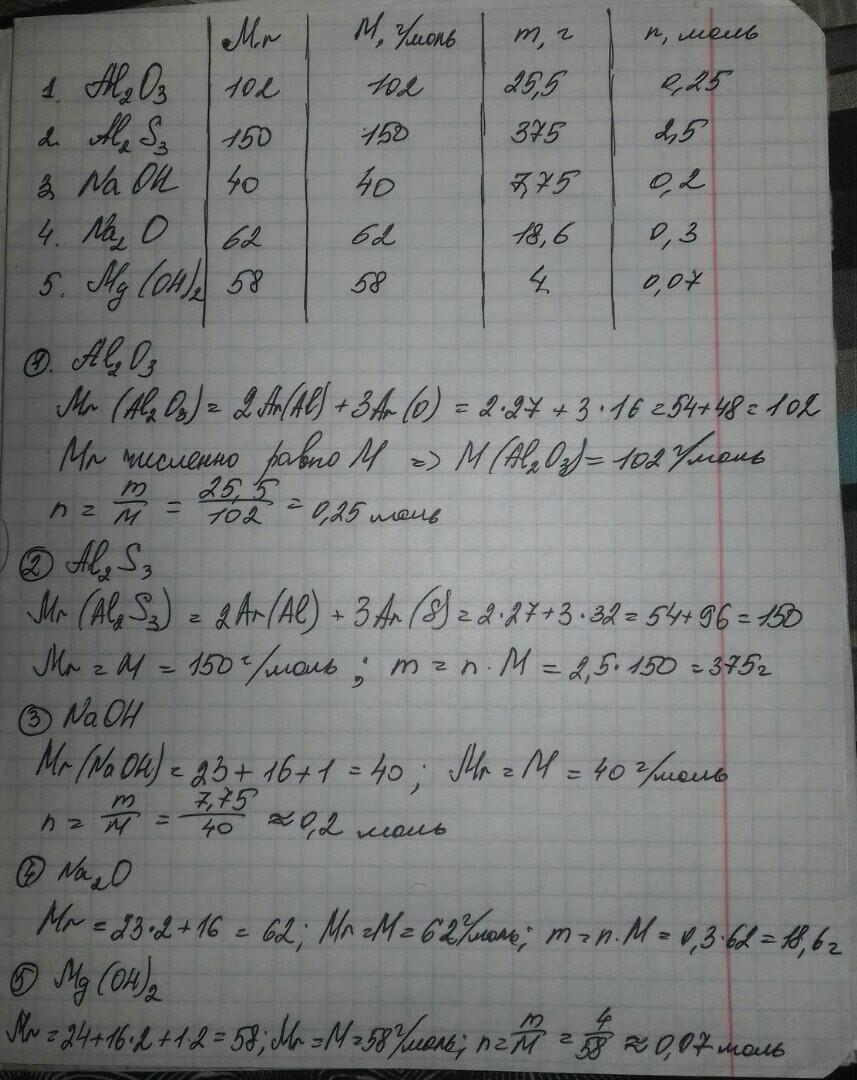 Mr M, г/моль m, г n, моль
1. Al₂O₃ 102 102 25,5 0,25
2. Al₂S₃ 150 150 375 2,5
3. NaOH 40 40 7,75 0,2
4. Na₂O 62 62 18,6 0,3
5. Mg(OH)₂ 58 58 4 0,07
①. Al₂O₃
Mr (Al₂O₃) = 2Ar(Al) + 3Ar(O) = 2·27 + 3·16 = 54+48 = 102
Mr численно равно M => M(Al₂O₃) = 102 г/моль
n = m/M = 25,5/102 = 0,25 моль
② Al₂S₃
Mr (Al₂S₃) = 2Ar(Al) + 3Ar(S) = 2·27+3·32 = 54+96 = 150
Mr = M = 150 г/моль ; m = n·M = 2,5·150 = 375г
③ NaOH
Mr(NaOH) = 23+16+1 = 40 ; Mr = M = 40 г/моль
n = m/M = 7,75/40 ≈ 0,2 моль
④ Na₂O
Mr = 23·2+16 = 62; Mr = M = 62 г/моль; m = n·M = 0,3·62 = 18,6 г
⑤ Mg(OH)₂
Mr = 24+16·2+1·2 = 58; Mr = M = 58 г/моль; n = m/M = 4/58 ≈ 0,07 моль